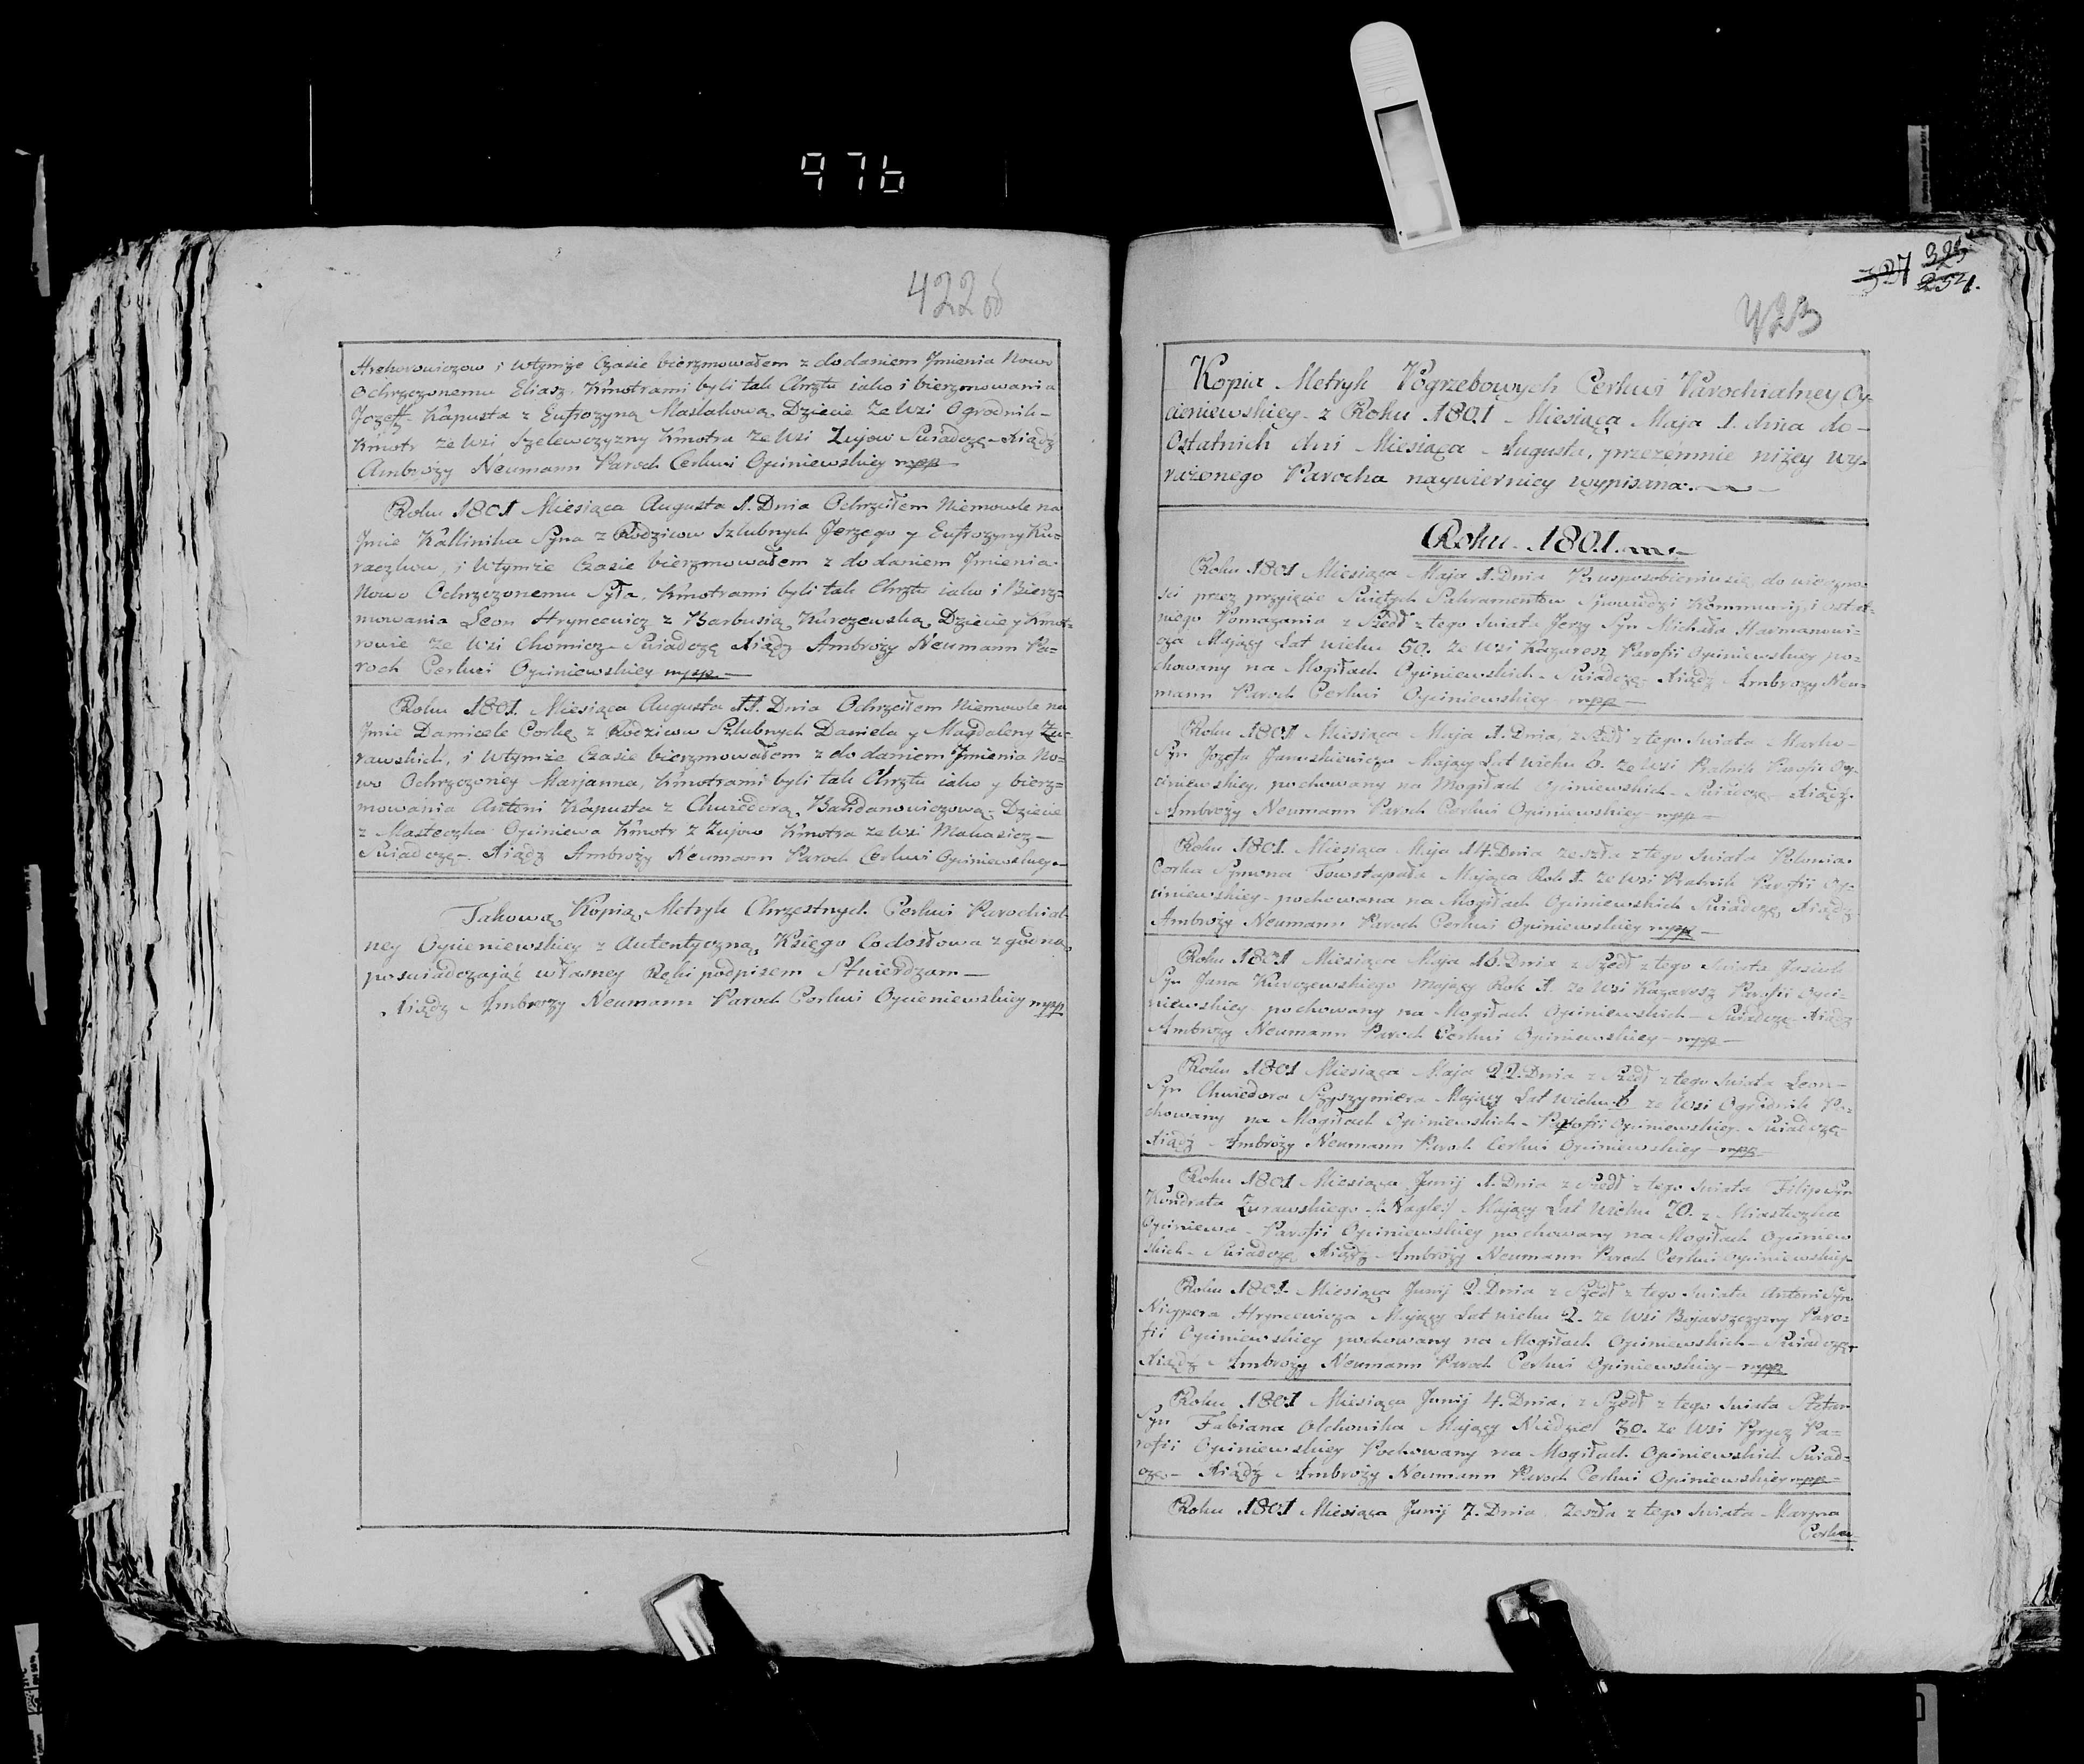 976
422об
Hrehorowiczow i wtymże Czasie bierzmowałem z dodaniem Jmienia Nowo
Ochrzczonemu Eliasz. Kmotrami byli tak Chrztu iako i bierzmowania
Jozeff Kapusta z Eufrozyną Maslakową. Dziecie ze Wsi Ogrodnik-
Kmotr ze Wsi Szelewczyzny Kmotra ze Wsi Zujow Suiadczę - Xiądz
Ambroży Neumann Paroch Cerkwi Opiniewskiey mpp
Roku 1801 Miesiąca Augusta 1. Dnia Ochrzciłem Niemowle na
Jmie Kallinika Syna z Rodzicow Szlubnych Jerzego y Eufrozyny Ku=
raczkow, i wtymże Czasie bierzmowałem z dodaniem Jmienia
Nowo Ochrzczonemu Syła, Kmotrami byli tak Chrztu iako i Bierz=
mowania Leon Hryncewicz z Barbusią Kurczewską, Dziecie y Kmot=
rowie ze Wsi Chomicz - Suiadczę Xiądz Ambroży Neumann Pa=
roch Cerkwi Opiniewskiey mpp
Roku 1801. Miesiąca Augusta 11. Dnia Ochrzciłem Niemowle na
Jmie Damicele Corkę z Rodzicow Szlubnych Daniela y Magdaleny Żu=
rawskich, i wtymże Czasie bierzmowałem z dodaniem Jmienia No=
wo Ochrzczoney Marjanna, Kmotrami byli tak Chrztu iako y bierz=
mowania Antoni Kapusta z Chwiedorą Bahdanowiczową. Dziecie
z Miasteczka Opiniewa Kmotr z Zujow Kmotra ze Wsi
Suiadczę - Xiądz Ambroży Neumann Paroch Cerkwi Opiniewskiey
Takową Kopią Metryk Chrzestnych Cerkwi Parochial
ney Opieniewskiey z Autentyczną Księgo Codosłowa zgodną
posuiadczając własney Ręki podpisem Stwierdzam -
Xiądz Ambroży Neumann Paroch Cerkwi Opieniewskiey mpp
327 325
254.
423
Kopia Metryk Pogrzebowych Cerkwi Parochialney Op-
cieniewskiey z Roku 1801 Miesiąca Maja 1. dnia do-
Ostatnich dni Miesiąca Augusta, przezemnie niżey wy-
rażonego Parocha naywierniey wypisana.
Roku 1801.
Roku 1801 Miesiąca Maja 1. Dnia Po usposobieniu się do wieczno=
sci przez przyięcie Suiętych Sakramentow Spowiedzi Kommunij i ostat=
niego Pomazania z Szedł z tego Suiata Jerzy Syn Michała Harmanowi=
cza Maiący Lat wieku 50. ze Wsi Kazaresz Parofii Opiniewskiey po=
chowany na Mogiłach Opiniewskich - Suiadczę - Xiądz Ambroży Neu=
mann Paroch Cerkwi Opiniewskiey mpp
Roku 1801 Miesiąca Maja 1. Dnia, z Szedł z tego Suiata Marko
Syn Jozefa Januszkiewicza Maiący Lat wieku 6. ze Wsi Ratnik Parofii Opi=
ciniewskiey, pochowany na Mogiłach Opiniewskich - Suiadczę - Xiądz
Ambroży Neumann Paroch Cerkwi Opiniewskiey mpp
Roku 1801. Miesiąca Maja 14. Dnia zeszła z tego Suiata Polonia
Corka Symona Towstapała Maiąca Rok 1. ze Wsi Ratnik Parofii Opi=
ciniewskiey pochowana na Mogiłach Opiniewskich Suiadczę, Xiądz
Ambroży Neumann Paroch Cerkwi Opiniewskiey mpp
Roku 1801 Miesiąca Maja 16. Dnia z Szedł z tego Suiata
Syn Jana Kurczewskiego Maiący Rok 1. ze Wsi Kazaresz Parofii Opi=
niewskiey pochowany na Mogiłach Opiniewskich - Suiadczę - Xiądz
Ambroży Neumann Paroch Cerkwi Opiniewskiey mpp
Roku 1801 Miesiąca Maja 22. Dnia z Szedł z tego Suiata Leon
Syn Chwiedora Maiący Lat wieku 6 ze Wsi Ogrodnik Po=
chowany na Mogiłach Opiniewskich - Parofii Opiniewskiey. Suiadczę
Xiądz Ambroży Neumann Paroch Cerkwi Opiniewskiey mpp
Roku 1801 Miesiąca Junij 1. Dnia z Szedł z tego Suiata Filip Syn
Kondrata Żurawskiego /: Nagle :/ Maiący Lat wieku 70. z Miasteczka
Opiniewa - Parofii Opiniewskiey pochowany na Mogiłach Opiniew
skich - Suiadczę Xiądz Ambroży Neumann Paroch Cerkwi Opiniewskiey
Roku 1801. Miesiąca Junij 2. Dnia z Szedł z tego Suiata Antoni Syn
Hryncewicza Maiący Lat wieku 2. ze Wsi Bojarszczyzny Paro=
fii Opiniewskiey pochowany na Mogiłach Opiniewskich - Suiadczę
Xiądz Ambroży Neumann Paroch Cerkwi Opiniewskiey - mpp
Roku 1801 Miesiąca Junij 4. Dnia, z Szedł z tego Suiata Stefan
Syn Fabiana Olchowika Maiący Niedziel 30. ze Wsi Pa=
rofii Opiniewskiey Pochowany na Mogiłach Opiniewskich Suiad=
czę - Xiądz Ambroży Neumann Paroch Cerkwi Opiniewskiey mpp
Roku 1801 Miesiąca Junij 7. Dnia Zeszła z tego Suiata - Maryna
Corka